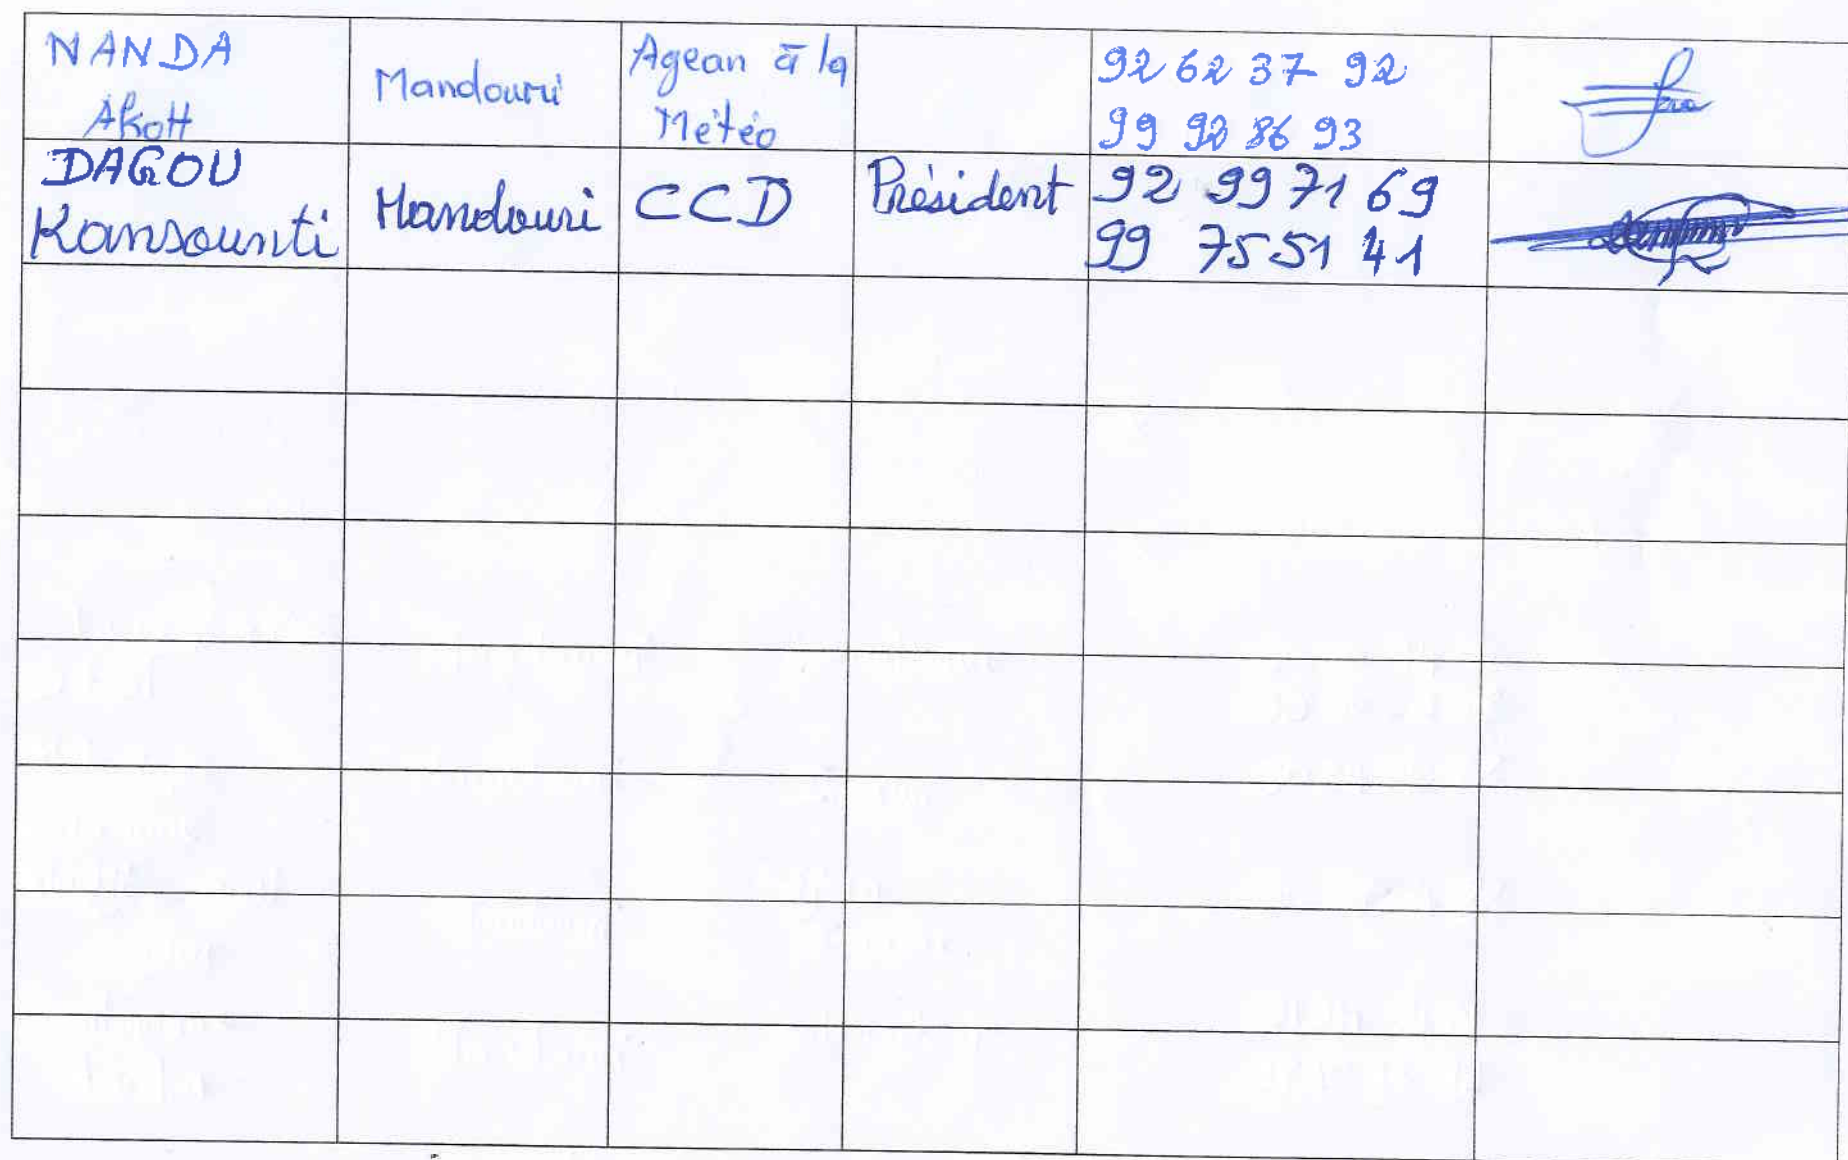 NANDA
Akott
Mandouri
Agean à la
Météo
92 62 37 92
99 92 86 93
DAGOU
Kansounti
Mandouri
CCD
Président
92 99 71 69
99 75 51 41